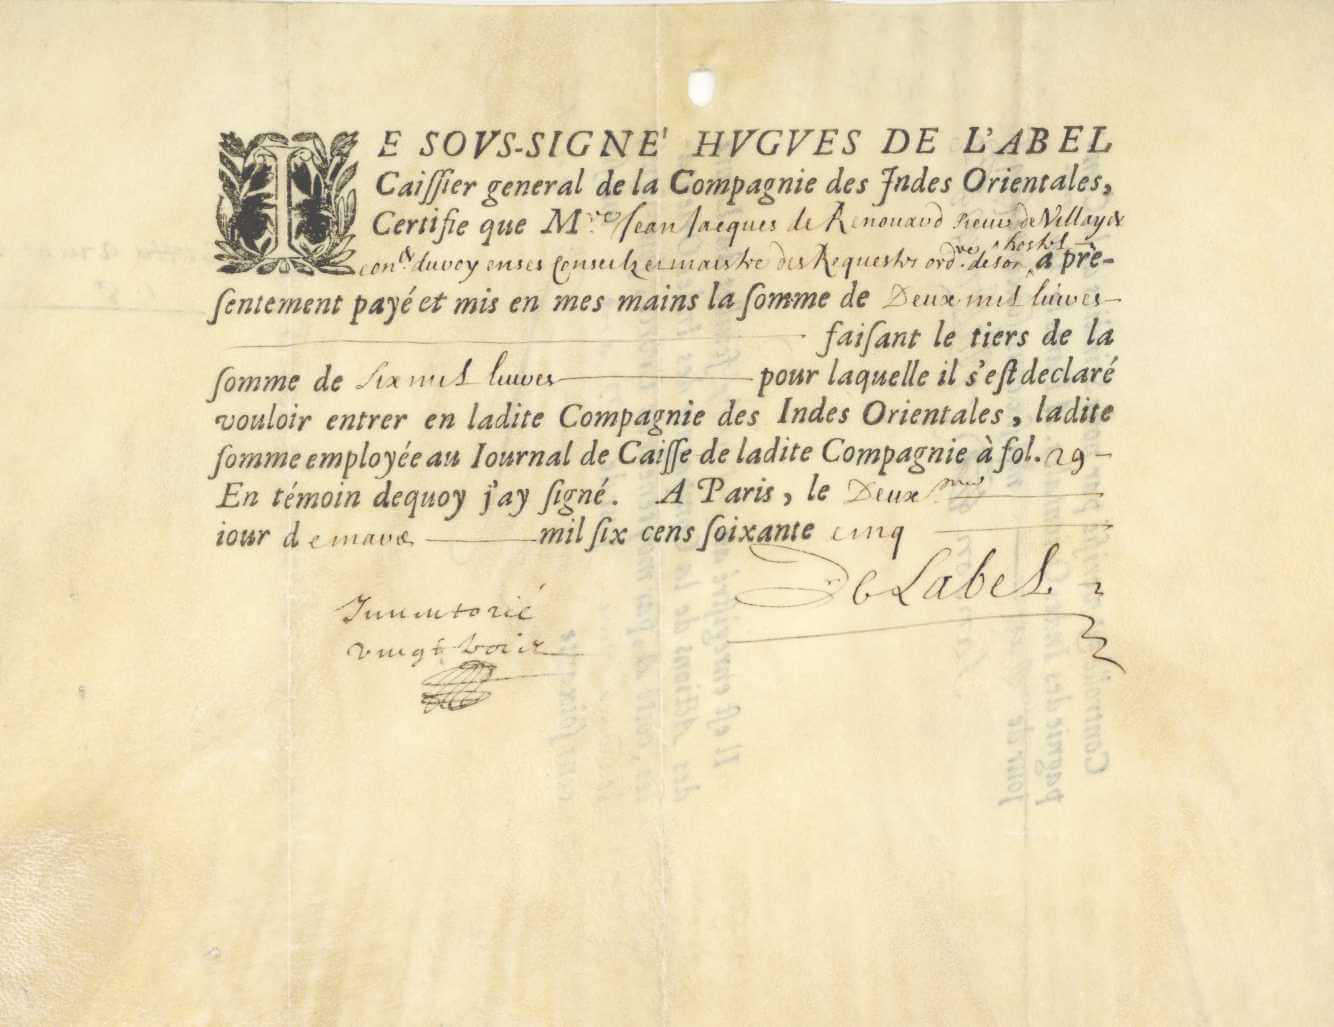 IE SOVS-SIGNE' HVGVES DE L'ABEL
Caiſſier general de la Compagnie des Indes Orientales,
Certifie que Mre Jean Jacques de Renouard sieur de Villayer
coner du roy en ses Conseilz et maistre des Requestes ordre de son hostel a prè-
ſentement payé et mis en mes mains la ſomme de Deux mil liures
faiſant le tiers de la
ſomme de Six mil liures pour laquelle il s'eſt declaré
vouloir entrer en ladite Compagnie des Indes Orientales, ladite
ſomme employée au Iournal de Caiſſe de ladite Compagnie à fol. 29
En témoin dequoy j'ay ſigné. A Paris, le Deuxiesme
iour de mars mil ſix cens ſoixante cinq
De Label
Inuentorié
vingt trois